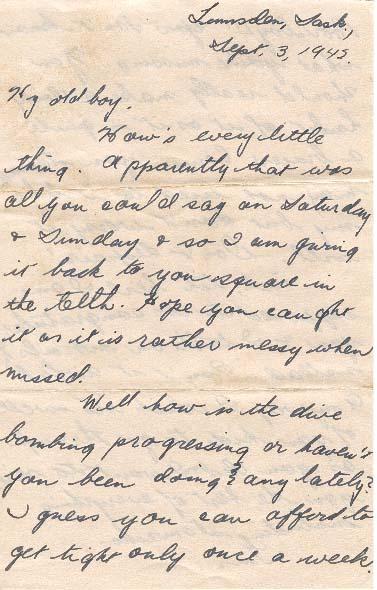 Lumsden, Sask.,
Sept. 3, 1943.
Hy old boy.
How's every little
thing. Apparently that was
all you could say on Saturday
& Sunday & so I am giving
it back to you square in
the teeth. Hope you caught
it as it is rather messy when
missed.
Well how is the dive
bombing progressing or haven't
you been doing any lately?
I guess you can afford to
get tight only once a week.